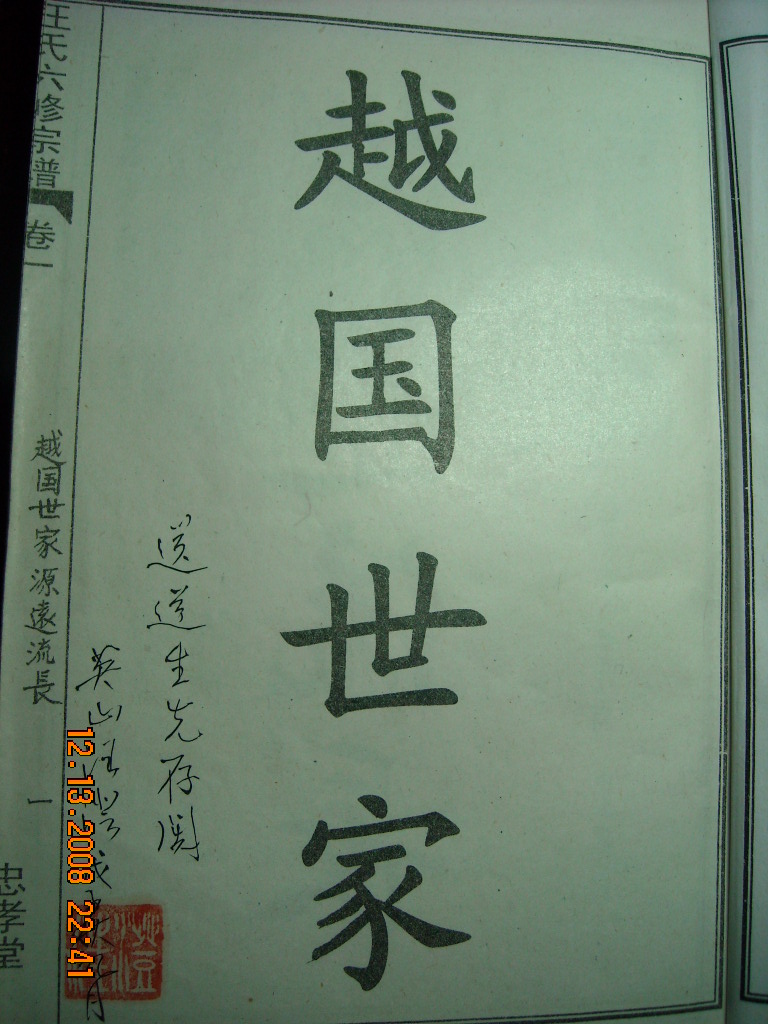 越国世家
送道生先存阅
英山汪
汪氏六修宗谱 卷一
越国世家源遠流長
一
忠孝堂
12.13.2008 22:41